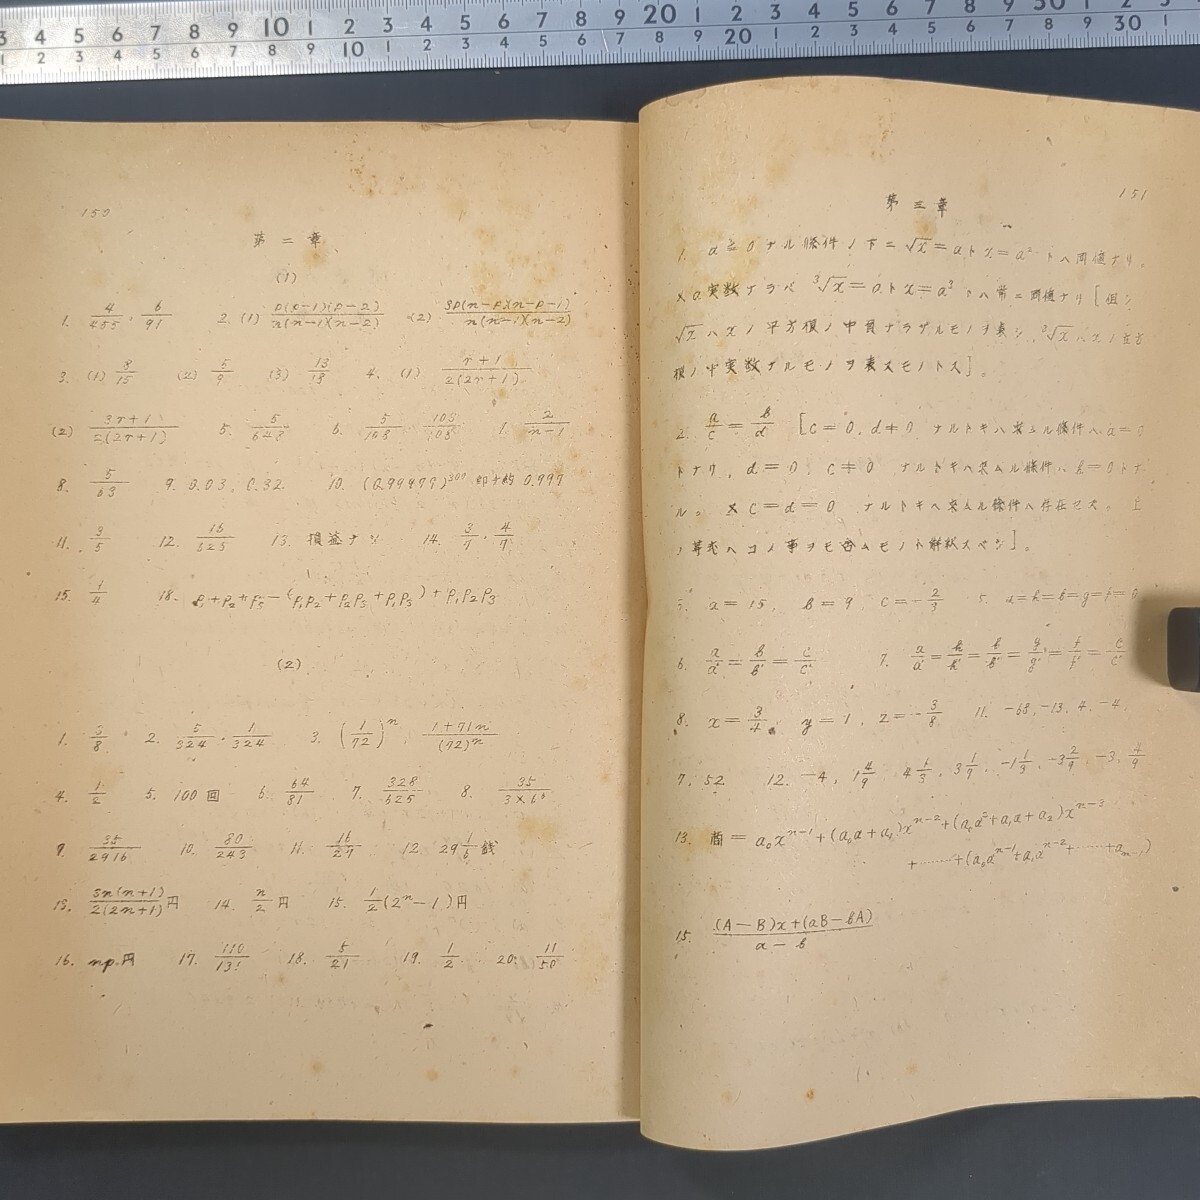 3 4 5 6 7 8 9 10 1 2 3 4 5 6 7 8 9 20 1 2 3 4 5 6 7 8 9 30 1 2 3
1 2 3 4 5 6 7 8 9 10 1 2 3 4 5 6 7 8 9 20 1 2 3 4 5 6 7 8 9 30
150
第二章
(1)
1. 4/455, 6/91 2. (1) p(p-1)(p-2)/n(n-1)(n-2) (2) 3p(n-p)(n-p-1)/n(n-1)(n-2)
3. (1) 8/15 (2) 5/9 (3) 13/18 4. (1) r+1/2(2r+1)
(2) 3r+1/2(2r+1) 5. 5/628 6. 5/108, 103/108 7. 2/n-1
8. 5/63 9. 0.03, 0.32 10. (0.99499)³⁰⁰ 即チ約 0.997
11. 3/5 12. 16/325 13. 損益ナシ 14. 3/7, 4/7
15. 1/4 18. p₁+p₂+p₃-(p₁p₂+p₂p₃+p₁p₃)+p₁p₂p₃
(2)
1. 3/8 2. 5/324, 1/324 3. (1/72)ⁿ, 1+71n/(72)ⁿ
4. 1/2 5. 100回 6. 64/81 7. 328/625 8. 35/3×6⁵
9. 35/2916 10. 80/243 11. 16/27 12. 29 1/6 銭
13. 3n(n+1)/2(2n+1) 円 14. n/2 円 15. 1/2(2ⁿ-1)円
16. np.円 17. 110/131 18. 5/21 19. 1/2 20. 11/50
151
第三章
1. a≧0 ナル條件ノ下ニ √x=a ト x=a² トハ同値ナリ。
又a實数ナラバ ³√x=a ト x=a³ トハ常ニ同値ナリ[但シ
√x ハ x ノ平方根ノ中負ナラザルモノヲ表シ、³√x ハ x ノ立方
根ノ中実数ナルモノヲ表スモノトス]。
2. a/c=b/d [c=0, d≠0 ナルトキハ求ムル條件ハ a=0
トナリ, d=0, c≠0 ナルトキハ求ムル條件ハ b=0トナ
ル。又 c=d=0 ナルトキハ求ムル條件ハ存在セズ。上
ノ等式ハコノ事ヲモ含ムモノト解釈スベシ]。
3. a=15, b=9, c=-2/3 5. a=h=b=g=f=0
6. a/a'=b/b'=c/c' 7. a/a'=h/h'=b/b'=g/g'=f/f'=c/c'
8. x=3/4, y=1, z=-3/8 11. -68, -13, 4, -4,
7, 52 12. -4, 1 4/9, 4 1/3, 3 1/9, -1 1/3, -3 2/9, -3, 4/9
13. 商=a₀xⁿ⁻¹+(a₀a+a₁)xⁿ⁻²+(a₀a²+a₁a+a₂)xⁿ⁻³
+………+(a₀aⁿ⁻¹+a₁aⁿ⁻²+……+aₙ₋₁)
15. (A-B)x+(aB-bA)/a-b